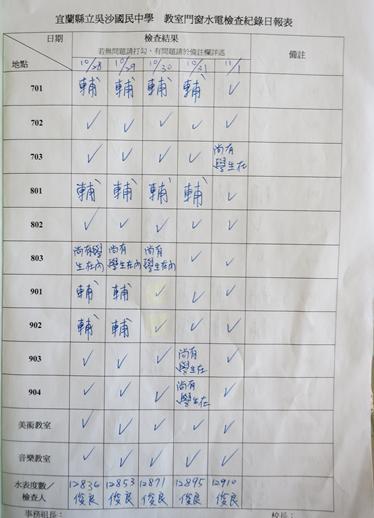 宜蘭縣立吳沙國民中學　教室門窗水電檢查紀錄日報表
日期 檢查結果 備註
若無問題請打勾、有問題於備註欄詳述
地點 10/28 10/29 10/30 10/31 11/1
701 輔 輔 輔 輔 ✓
702 ✓ ✓ ✓ ✓ ✓
703 ✓ ✓ ✓ ✓ 尚有學生在
801 輔 輔 輔 輔 ✓
802 ✓ ✓ ✓ ✓ ✓
803 尚有學生在內 尚有學生在內 尚有學生在內 ✓ ✓
901 輔 輔 ✓ ✓ ✓
902 輔 輔 ✓ ✓ ✓
903 ✓ ✓ ✓ 尚有學生在 ✓
904 ✓ ✓ ✓ 尚有學生在 ✓
美術教室 ✓ ✓ ✓ ✓ ✓
音樂教室 ✓ ✓ ✓ ✓ ✓
水表度數/ 12836 12853 12871 12895 12910
檢查人 俊良 俊良 俊良 俊良 俊良
事務組長： 校長：